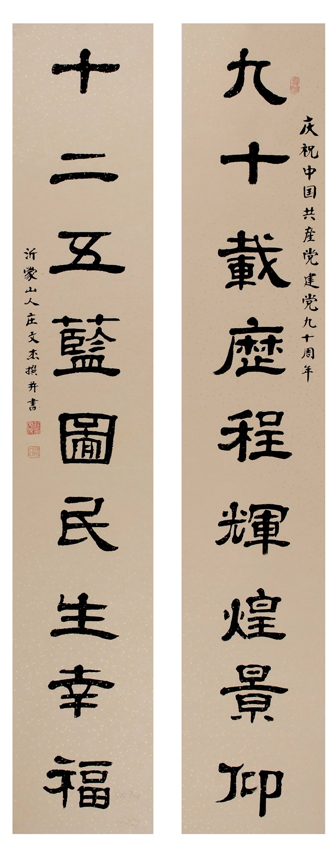 庆祝中国共產党建党九十周年
九十載歷程輝煌景仰
十二五藍圖民生幸福
沂蒙山人庄文杰撰并書